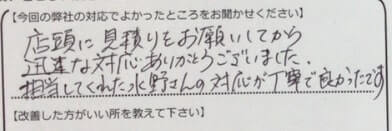 【今回の弊社の対応でよかったところをお聞かせください】
店頭に見積りをお願いしてから
迅速な対応ありがとうございました。
担当してくれた水野さんの対応が丁寧で良かったです
【改善した方がいい所を教えて下さい】